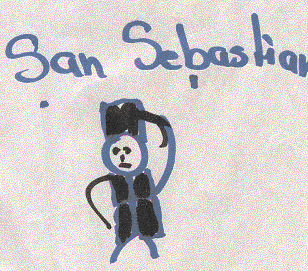 San Sebastian